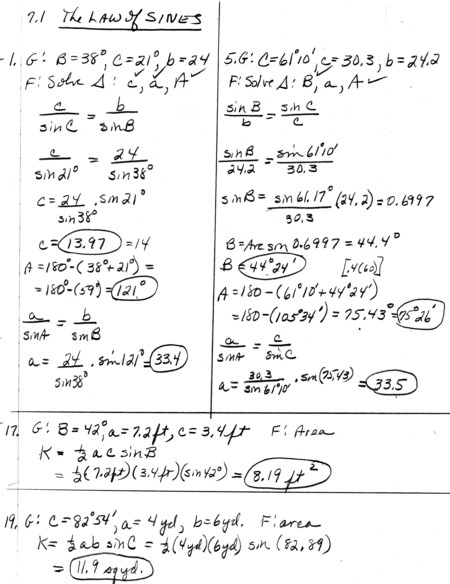 7.1 The LAW of SINES
1. G: B=38°, C=21°, b=24
F: Solve Δ: c, a, A
c/sin C = b/sin B
c/sin 21° = 24/sin 38°
c = 24/sin 38° · sin 21°
c = 13.97 = 14
A = 180° - (38° + 21°) =
= 180° - (59°) = 121°
a/sin A = b/sin B
a = 24/sin 38° · sin 121° = 33.4
5. G: C=61°10', c=30.3, b=24.2
F: Solve Δ: B, a, A
sin B/b = sin C/c
sin B/24.2 = sin 61°10'/30.3
sin B = sin 61.17°/30.3 (24.2) = 0.6997
B = Arc sin 0.6997 = 44.4°
B = 44°24' [.4(60)]
A = 180 - (61°10' + 44°24')
= 180 - (105°34') = 75.43° = 75°26'
a/sin A = c/sin C
a = 30.3/sin 61°10' · sin (75.43) = 33.5
17. G: B = 42°, a = 7.2ft, c = 3.4ft F: Area
K = ½ a c sin B
= ½ (7.2ft)(3.4ft)(sin 42°) = 8.19 ft²
19. G: C = 82°54', a = 4 yd, b = 6yd. F: area
K = ½ ab sin C = ½ (4yd)(6yd) sin (82.89)
= 11.9 sq yd.